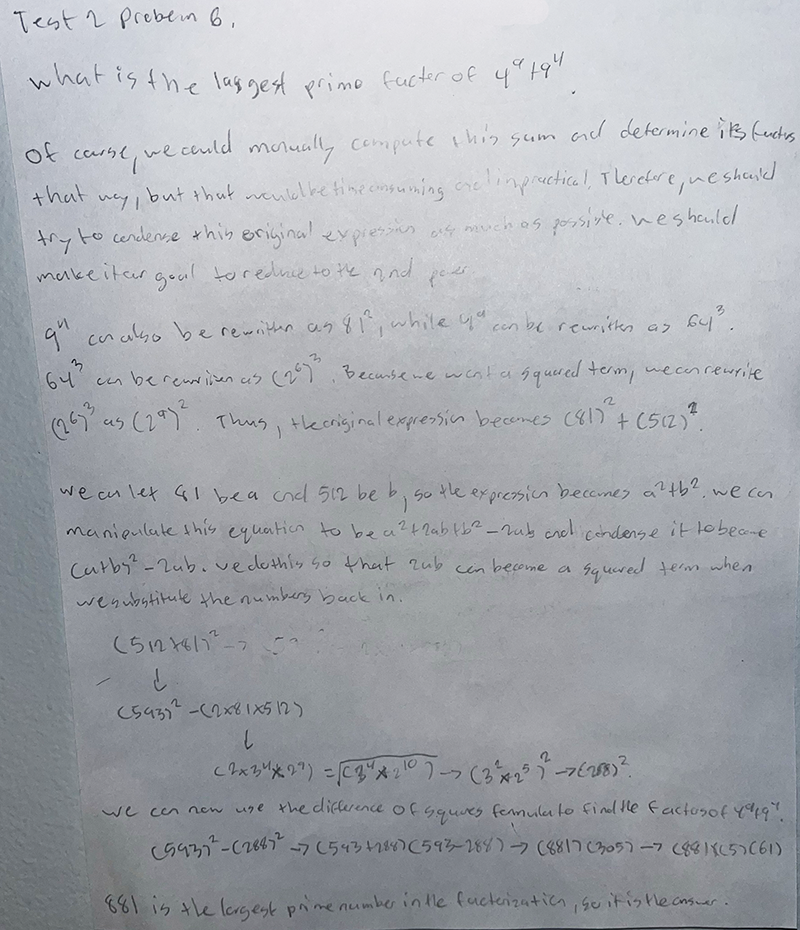 Test 2 Probem 6.
What is the largest prime factor of 4^9+9^4.
Of course, we could manually compute this sum and determine its factors
that way, but that would be time consuming and inpractical. Therefore, we should
try to condense this original expression as much as possible. We should
make it our goal to reduce to the 2nd power
9^4 can also be rewritten as 81^2, while 4^9 can be rewritten as 64^3.
64^3 can be rewriiven as (2^6)^3. Because we want a squared term, we can rewrite
(2^6)^3 as (2^9)^2. Thus, the original expression becomes (81)^2 + (512)^2.
We can let 81 be a and 512 be b, so the expression becomes a^2+b^2. We can
manipulate this equation to be a^2+2ab+b^2-2ab and condense it to become
(a+b)^2-2ab. We do this so that 2ab can become a squared term when
we substitute the numbers back in.
(512+81)^2 →
↓
(593)^2 - (2×81×512)
↓
(2×3^4×2^9) = √(3^4×2^10) → (3^2×2^5)^2 → (288)^2.
We can now use the difference of squares formula to find the factors of 4^9+9^4.
(593)^2-(288)^2 → (593+288)(593-288) → (881)(305) → (881)(5)(61)
881 is the largest prime number in the factorization, so it is the answer.